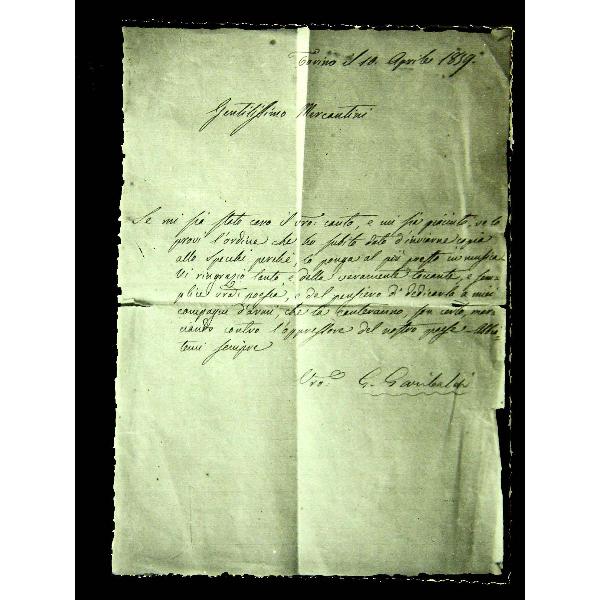 Torino il 10. Aprile 1859.
Gentilissimo Mercantini
Se mi sia stato caro il vro: canto, e mi sia piaciuto, ve lo
provi l'ordine che ho subito dato d'inviarne copia
allo Specchi perchè, lo ponga al più presto in musica
Vi ringrazio tanto e della veramente toccante, e sem-
plice vra: poesia, e del pensiero di dedicarla a miei
compagni d'armi, che la canteranno, son certo, mar-
ciando contro l'oppressore del nostro paese - Abbia-
temi sempre
Vro: G. Garibaldi